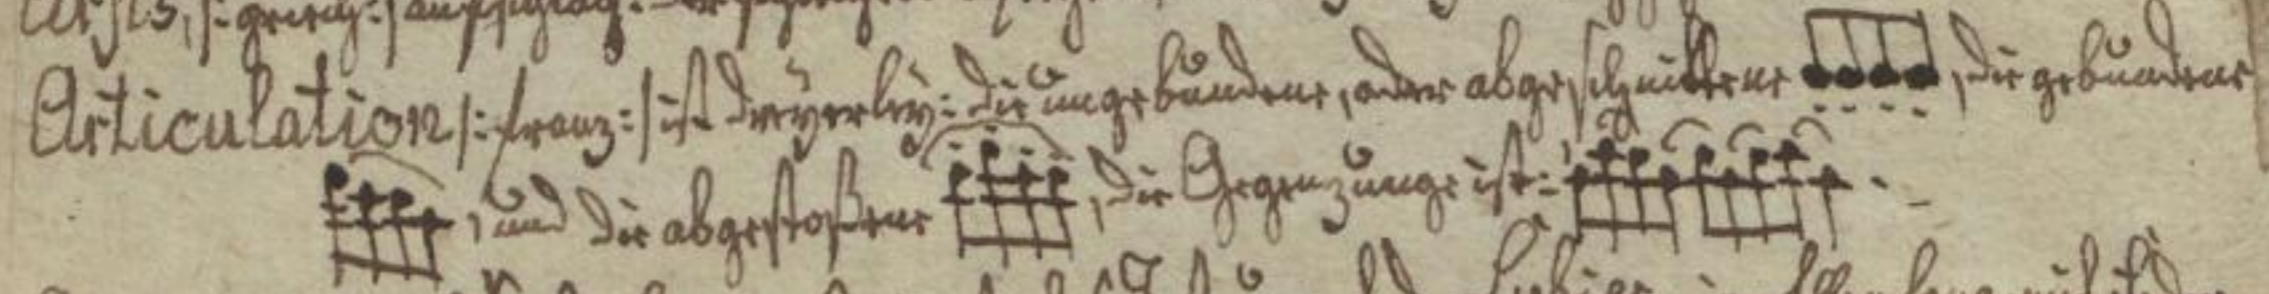 Arsis, /: griech: /
Articulation /: franz: / ist dreÿerleÿ: die ungebundene, oder abgeschnittene , die gebundene
, und die abgestoßene , die Gegenzunge ist: